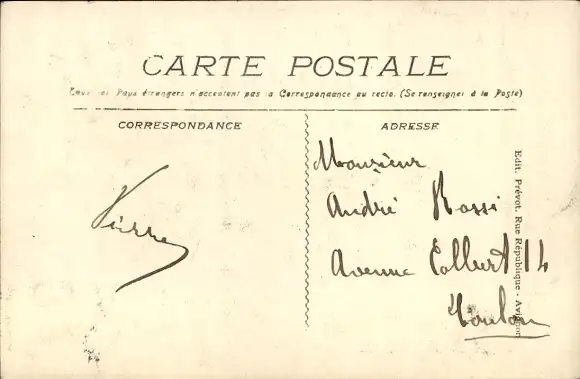 CARTE POSTALE
Tous les Pays étrangers n'acceptent pas la Correspondance au recto. (Se renseigner à la Poste)
CORRESPONDANCE
ADRESSE
Pierre
Monsieur
André Rossi
Avenue Colbert 4
Toulon
Edit. Prévot. Rue République - Avignon